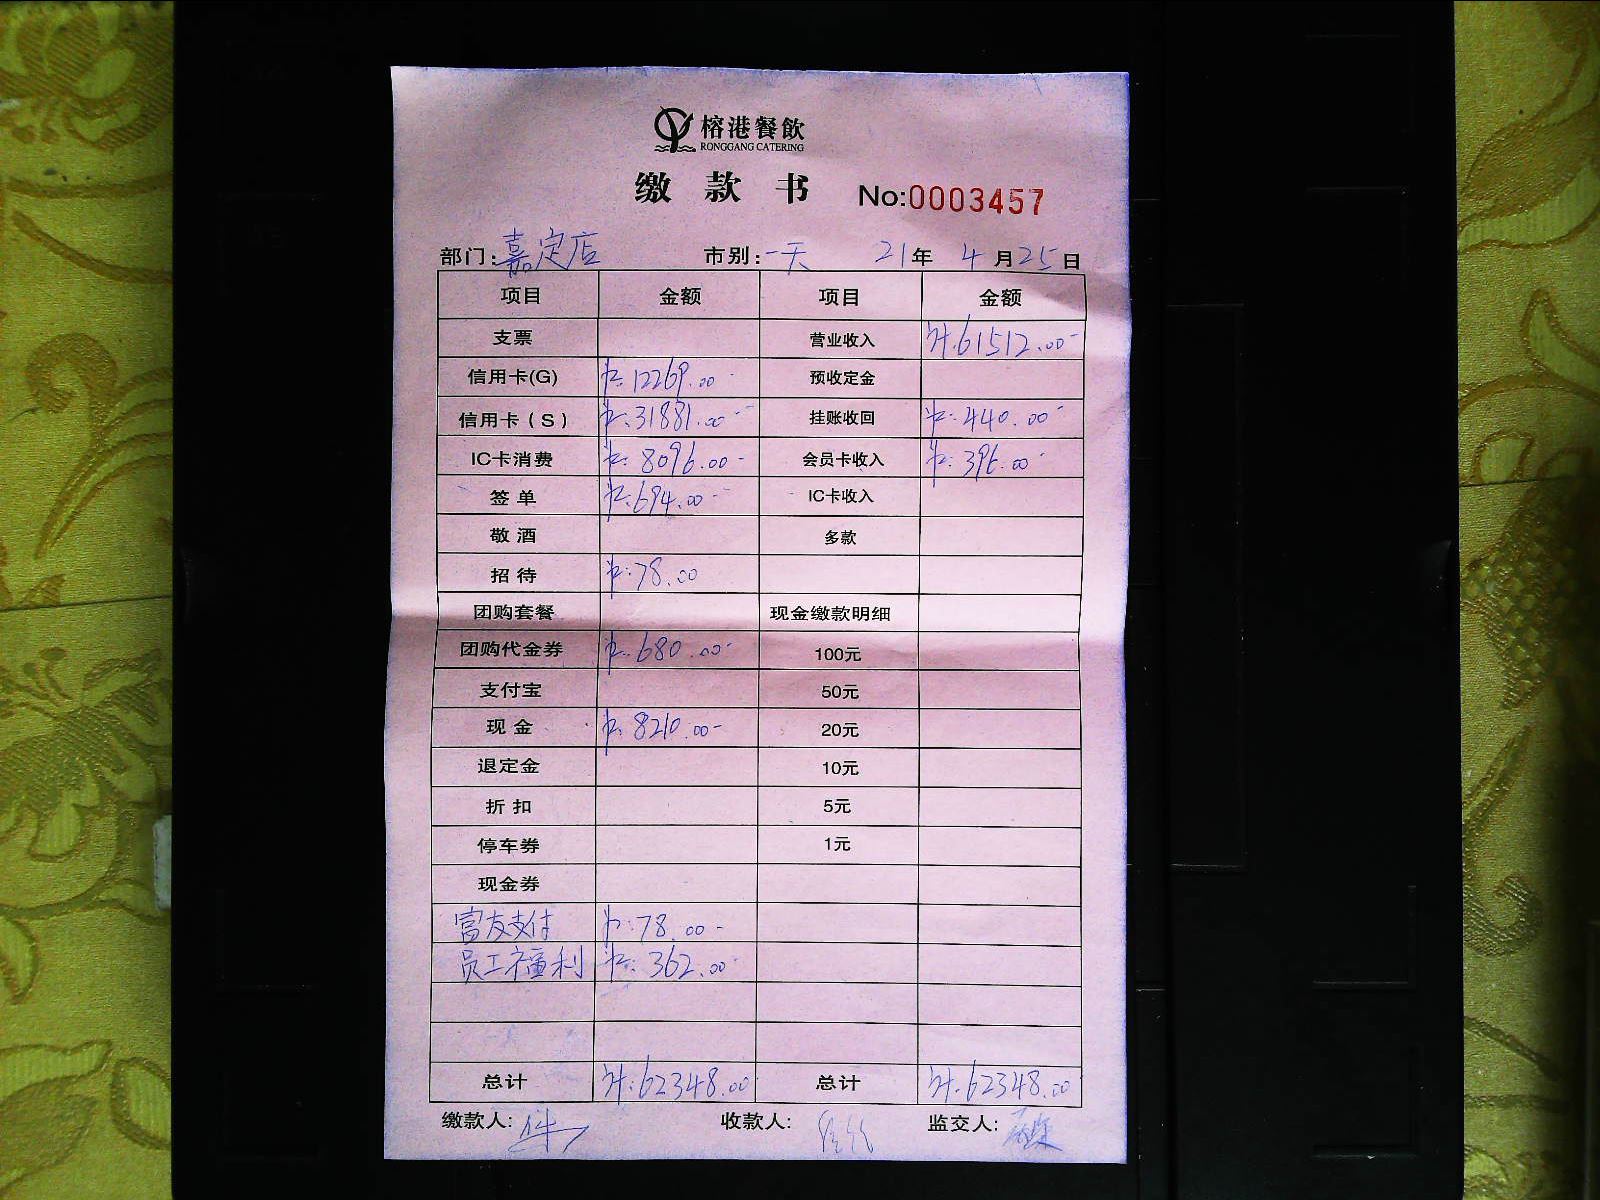 榕港餐飲
RONGGANG CATERING
缴款书 No:0003457
部门:嘉定店 市别:一天 21年 4月25日
项目 金额 项目 金额
支票 营业收入 计.61512.00-
信用卡(G) 12269.00- 预收定金
信用卡(S) 31881.00- 挂账收回 440.00-
IC卡消费 8096.00- 会员卡收入 396.00-
签单 694.00- IC卡收入
敬酒 多款
招待 78.00
团购套餐 现金缴款明细
团购代金券 680.00- 100元
支付宝 50元
现金 8210.00- 20元
退定金 10元
折扣 5元
停车券 1元
现金券
富友支付 78.00-
员工福利 362.00-
总计 计:62348.00 总计 计.62348.00
缴款人: 收款人: 监交人: